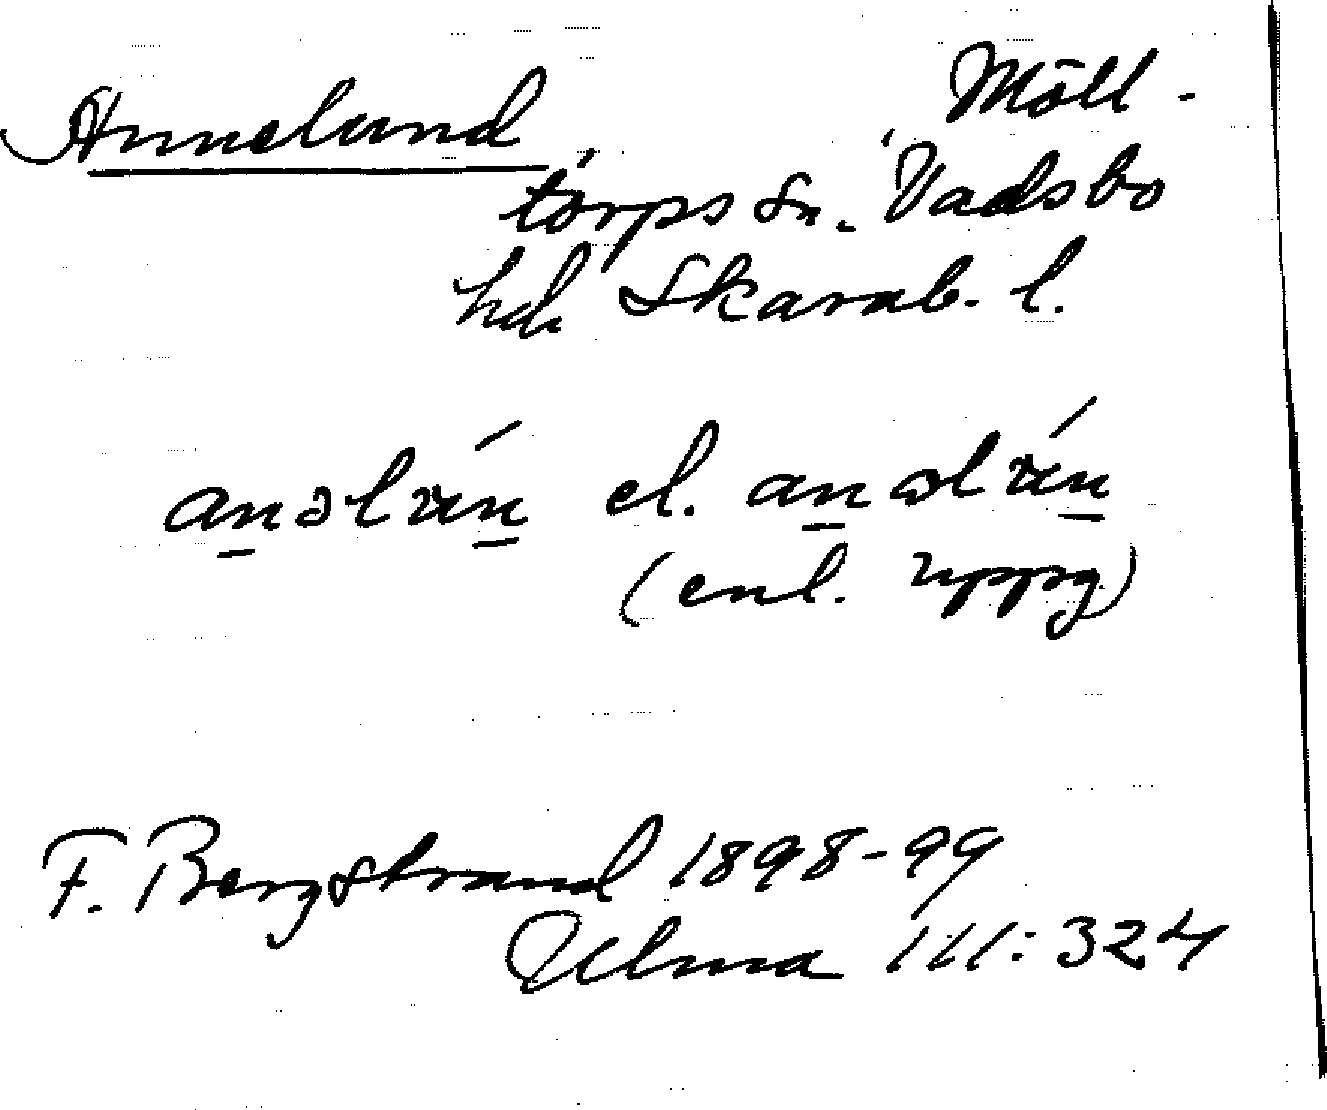 Annelund, Möll-
torps sn. Vadsbo
hd. Skarab. l.
el.
(enl. uppg)
F. Bergstrand 1898-99
Ulma 111:324